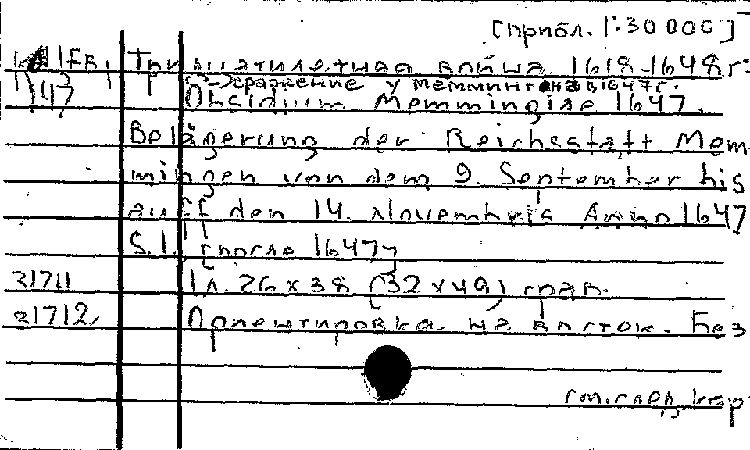 [прибл. 1:30 000]
Тридцатилетная война 1618-1648 гг.
Сражение у Меммингена в 1647 г.
147 Obsidium Memmingise 1647.
Belägerung der Reichsstatt Mem-
mingen von dem 9. September bis
auff den 14. Novembris Anno 1647
S.l. [после 1647]
21711 1 л. 26 x 38 (32 x 49) грав.
21712. Ориентировка на восток. Без
см. след. кар